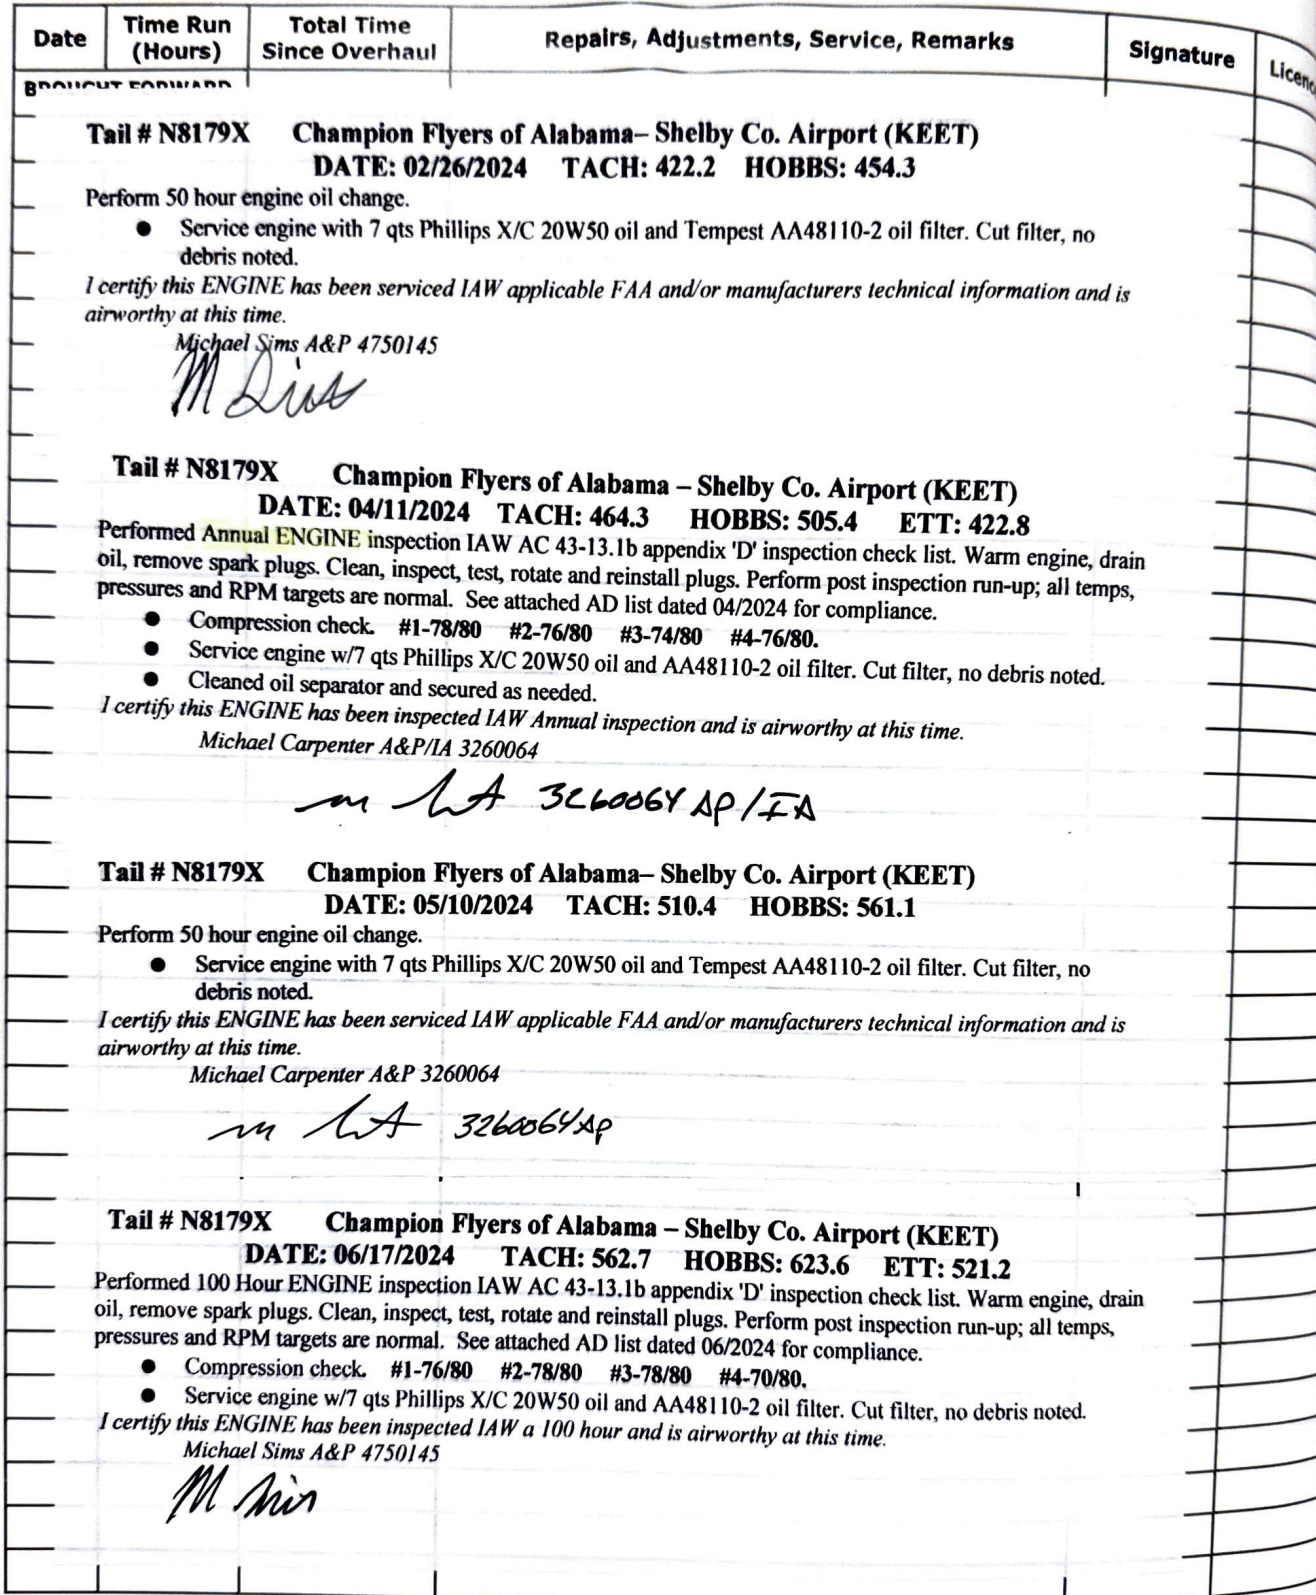 Date Time Run (Hours) Total Time Since Overhaul Repairs, Adjustments, Service, Remarks Signature
BROUGHT FORWARD
Tail # N8179X Champion Flyers of Alabama– Shelby Co. Airport (KEET)
DATE: 02/26/2024 TACH: 422.2 HOBBS: 454.3
Perform 50 hour engine oil change.
● Service engine with 7 qts Phillips X/C 20W50 oil and Tempest AA48110-2 oil filter. Cut filter, no
debris noted.
I certify this ENGINE has been serviced IAW applicable FAA and/or manufacturers technical information and is
airworthy at this time.
Michael Sims A&P 4750145
Tail # N8179X Champion Flyers of Alabama – Shelby Co. Airport (KEET)
DATE: 04/11/2024 TACH: 464.3 HOBBS: 505.4 ETT: 422.8
Performed Annual ENGINE inspection IAW AC 43-13.1b appendix 'D' inspection check list. Warm engine, drain
oil, remove spark plugs. Clean, inspect, test, rotate and reinstall plugs. Perform post inspection run-up; all temps,
pressures and RPM targets are normal. See attached AD list dated 04/2024 for compliance.
● Compression check. #1-78/80 #2-76/80 #3-74/80 #4-76/80.
● Service engine w/7 qts Phillips X/C 20W50 oil and AA48110-2 oil filter. Cut filter, no debris noted.
● Cleaned oil separator and secured as needed.
I certify this ENGINE has been inspected IAW Annual inspection and is airworthy at this time.
Michael Carpenter A&P/IA 3260064
3260064 AP/IA
Tail # N8179X Champion Flyers of Alabama– Shelby Co. Airport (KEET)
DATE: 05/10/2024 TACH: 510.4 HOBBS: 561.1
Perform 50 hour engine oil change.
● Service engine with 7 qts Phillips X/C 20W50 oil and Tempest AA48110-2 oil filter. Cut filter, no
debris noted.
I certify this ENGINE has been serviced IAW applicable FAA and/or manufacturers technical information and is
airworthy at this time.
Michael Carpenter A&P 3260064
3260064 AP
Tail # N8179X Champion Flyers of Alabama – Shelby Co. Airport (KEET)
DATE: 06/17/2024 TACH: 562.7 HOBBS: 623.6 ETT: 521.2
Performed 100 Hour ENGINE inspection IAW AC 43-13.1b appendix 'D' inspection check list. Warm engine, drain
oil, remove spark plugs. Clean, inspect, test, rotate and reinstall plugs. Perform post inspection run-up; all temps,
pressures and RPM targets are normal. See attached AD list dated 06/2024 for compliance.
● Compression check. #1-76/80 #2-78/80 #3-78/80 #4-70/80.
● Service engine w/7 qts Phillips X/C 20W50 oil and AA48110-2 oil filter. Cut filter, no debris noted.
I certify this ENGINE has been inspected IAW a 100 hour and is airworthy at this time.
Michael Sims A&P 4750145